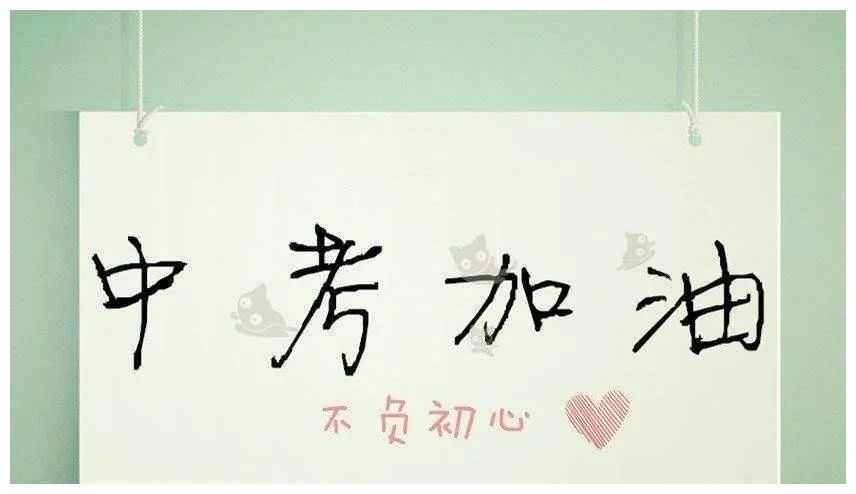 中考加油
不负初心